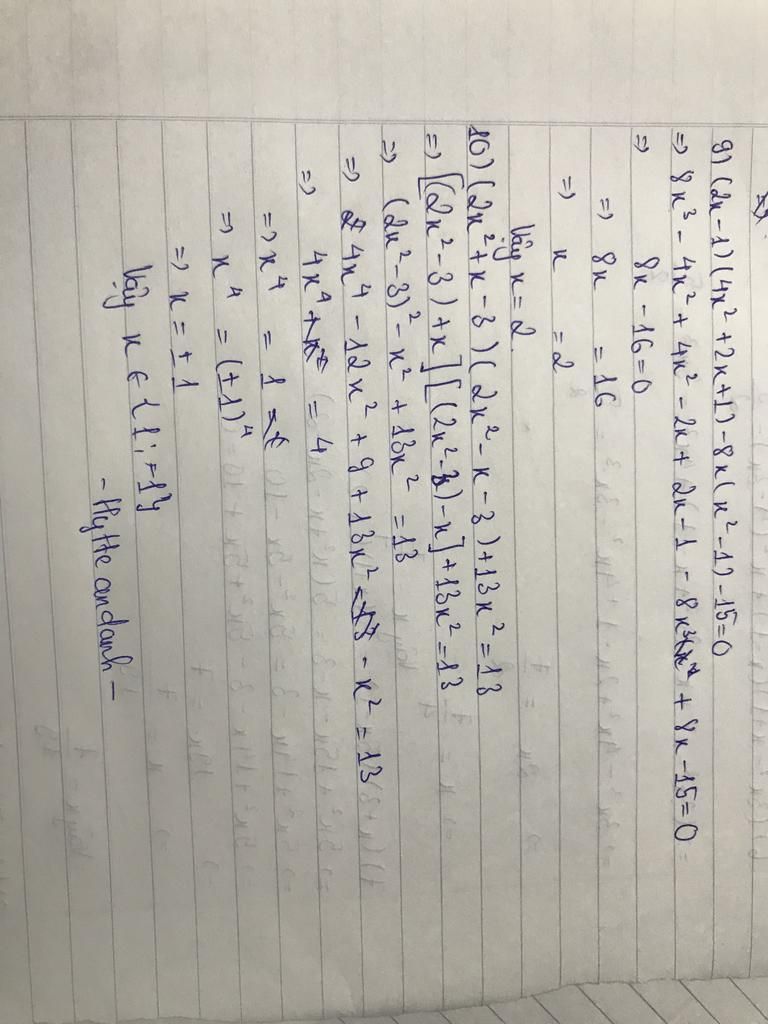 9) (2x - 1)(4x² + 2x + 1) - 8x(x² - 1) - 15 = 0
=> 8x³ - 4x² + 4x² - 2x + 2x - 1 - 8x³ + 8x - 15 = 0
=> 8x - 16 = 0
=> 8x = 16
=> x = 2
Vậy x = 2.
10) (2x² + x - 3)(2x² - x - 3) + 13x² = 13
=> [(2x² - 3) + x][(2x² - 3) - x] + 13x² = 13
=> (2x² - 3)² - x² + 13x² = 13
=> 4x⁴ - 12x² + 9 + 13x² - x² = 13
=> 4x⁴ = 4
=> x⁴ = 1
=> x⁴ = (±1)⁴
=> x = ±1
Vậy x ∈ {1; -1}